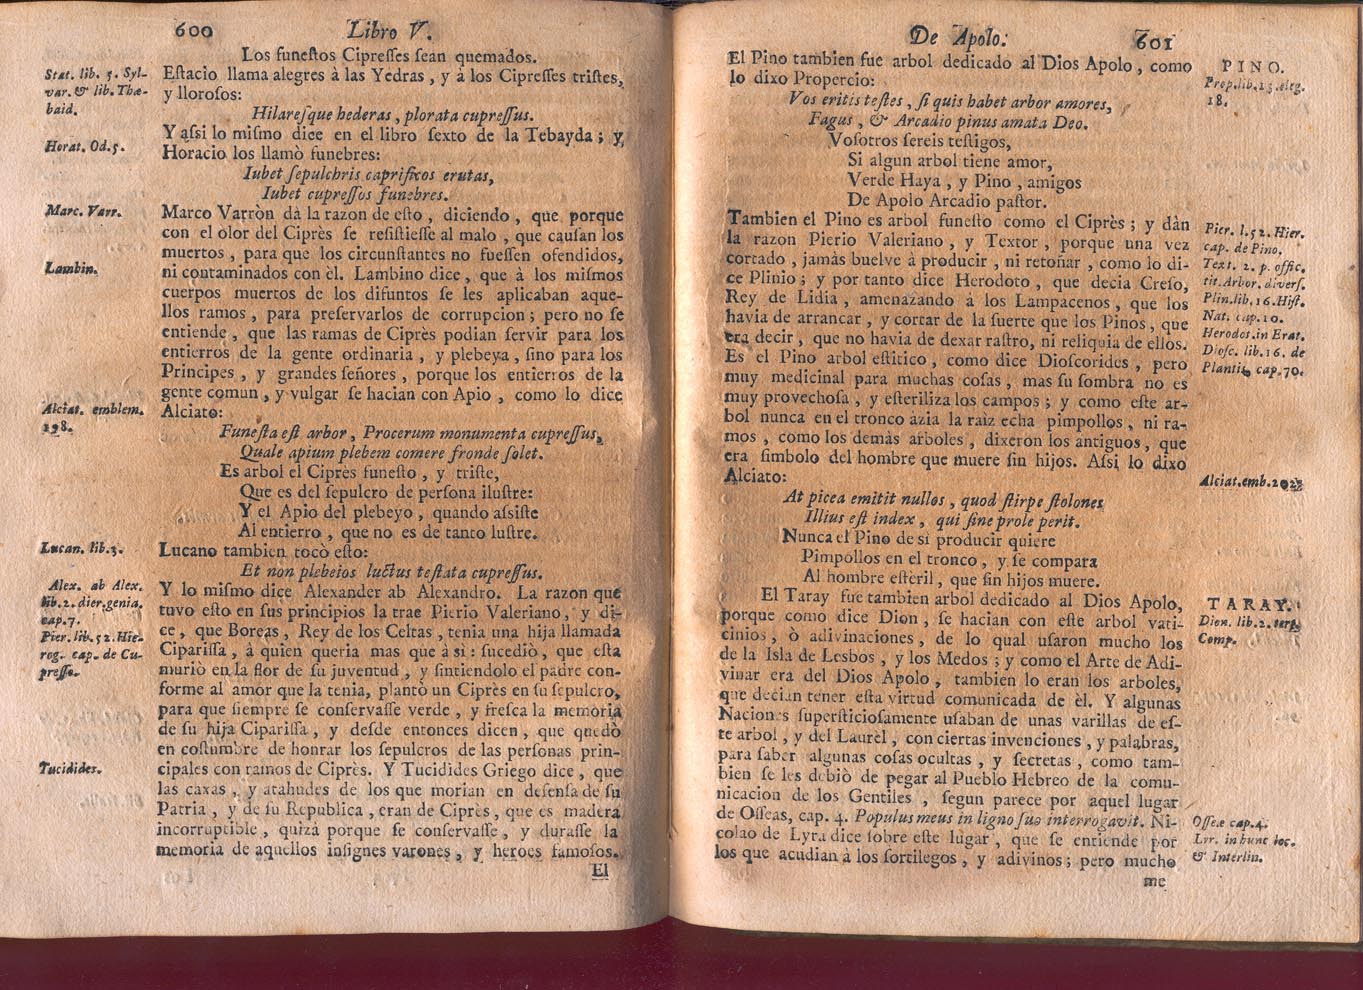 600
Libro V.
Los funeſtos Cipreſſes ſean quemados.
Stat. lib. 5. Syl-
var. & lib. Thæ-
baid.
Eſtacio llama alegres à las Yedras, y à los Cipreſſes triſtes,
y lloroſos:
Hilareſque hederas, plorata cupreſſus.
Y aſsi lo miſmo dice en el libro ſexto de la Tebayda; y
Horat. Od. 5.
Horacio los llamò funebres:
Iubet ſepulchris caprificos erutas,
Iubet cupreſſos funebres.
Marc. Varr.
Marco Varròn dà la razon de eſto, diciendo, que porque
con el olor del Ciprès ſe reſiſtieſſe al malo, que cauſan los
muertos, para que los circunſtantes no fueſſen ofendidos,
Lambin.
ni contaminados con èl. Lambino dice, que à los miſmos
cuerpos muertos de los difuntos ſe les aplicaban aque-
llos ramos, para preſervarlos de corrupcion; pero no ſe
entiende, que las ramas de Ciprès podian ſervir para los
entierros de la gente ordinaria, y plebeya, ſino para los
Principes, y grandes ſeñores, porque los entierros de la
gente comun, y vulgar ſe hacian con Apio, como lo dice
Alciat. emblem.
198.
Alciato:
Funeſta eſt arbor, Procerum monumenta cupreſſus,
Quale apium plebem comere fronde ſolet.
Es arbol el Ciprès funeſto, y triſte,
Que es del ſepulcro de perſona iluſtre:
Y el Apio del plebeyo, quando aſsiſte
Al entierro, que no es de tanto luſtre.
Lucan. lib. 3.
Lucano tambien tocò eſto:
Et non plebeios luctus teſtata cupreſſus.
Alex. ab Alex.
lib. 2. dier. genia.
cap. 7.
Pier. lib. 52. Hie-
rog. cap. de Cu-
preſſo.
Y lo miſmo dice Alexander ab Alexandro. La razon que
tuvo eſto en ſus principios la trae Pierio Valeriano, y di-
ce, que Boreas, Rey de los Celtas, tenia una hija llamada
Cipariſſa, à quien queria mas que à sì: ſucediò, que eſta
muriò en la flor de ſu juventud, y ſintiendolo el padre con-
forme al amor que la tenia, plantò un Ciprès en ſu ſepulcro,
para que ſiempre ſe conſervaſſe verde, y freſca la memoria
de ſu hija Cipariſſa, y deſde entonces dicen, que quedò
en coſtumbre de honrar los ſepulcros de las perſonas prin-
Tucidides.
cipales con ramos de Ciprès. Y Tucidides Griego dice, que
las caxas, y atahudes de los que morian en defenſa de ſu
Patria, y de ſu Republica, eran de Ciprès, que es madera
incorruptible, quizà porque ſe conſervaſſe, y duraſſe la
memoria de aquellos inſignes varones, y heroes famoſos.
El
De Apolo:
601
El Pino tambien fue arbol dedicado al Dios Apolo, como
lo dixo Propercio:
PINO.
Prop. lib. 1. eleg.
18.
Vos eritis teſtes, ſi quis habet arbor amores,
Fagus, & Arcadio pinus amata Deo.
Voſotros ſereis teſtigos,
Si algun arbol tiene amor,
Verde Haya, y Pino, amigos
De Apolo Arcadio paſtor.
Tambien el Pino es arbol funeſto como el Ciprès; y dàn
la razon Pierio Valeriano, y Textor, porque una vez
cortado, jamàs buelve à producir, ni retoñar, como lo di-
ce Plinio; y por tanto dice Herodoto, que decia Creſo,
Rey de Lidia, amenazando à los Lampacenos, que los
havia de arrancar, y cortar de la ſuerte que los Pinos, que
era decir, que no havia de dexar raſtro, ni reliquia de ellos.
Es el Pino arbol eſtitico, como dice Dioſcorides, pero
muy medicinal para muchas coſas, mas ſu ſombra no es
muy provechoſa, y eſteriliza los campos; y como eſte ar-
bol nunca en el tronco azia la raìz echa pimpollos, ni ra-
mos, como los demàs arboles, dixeron los antiguos, que
era ſimbolo del hombre que muere ſin hijos. Aſsi lo dixo
Alciato:
Pier. l. 52. Hier.
cap. de Pino.
Text. 2. p. offic.
tit. Arbor. diverſ.
Plin. lib. 16. Hiſt.
Nat. cap. 10.
Herodot. in Erat.
Dioſc. lib. 16. de
Plantis, cap. 70.
Alciat. emb. 202.
At picea emitit nullos, quod ſtirpe ſtolones
Illius eſt index, qui ſine prole perit.
Nunca el Pino de sì producir quiere
Pimpollos en el tronco, y ſe compara
Al hombre eſtèril, que ſin hijos muere.
El Taray fue tambien arbol dedicado al Dios Apolo,
porque como dice Dion, ſe hacian con eſte arbol vati-
cinios, ò adivinaciones, de lo qual uſaron mucho los
de la Isla de Lesbos, y los Medos; y como el Arte de Adi-
vinar era del Dios Apolo, tambien lo eran los arboles,
que decian tener eſta virtud comunicada de èl. Y algunas
Naciones ſuperſticioſamente uſaban de unas varillas de eſ-
te arbol, y del Laurèl, con ciertas invenciones, y palabras,
para ſaber algunas coſas ocultas, y ſecretas, como tam-
bien ſe les debiò de pegar al Pueblo Hebreo de la comu-
nicacion de los Gentiles, ſegun parece por aquel lugar
de Oſſeas, cap. 4. Populus meus in ligno ſuo interrogavit. Ni-
colao de Lyra dice ſobre eſte lugar, que ſe entiende por
los que acudian à los ſortilegos, y adivinos; pero mucho
TARAY.
Dion. lib. 2.
Comp.
Oſſeæ cap. 4.
Lyr. in hunc loc.
& Interlin.
me